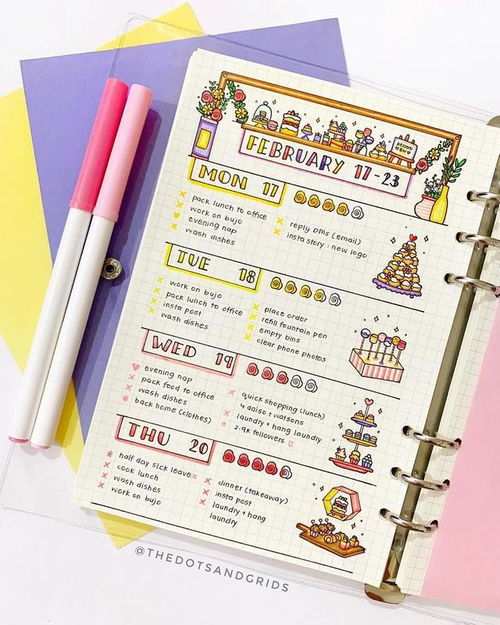 FEBRUARY 17-23
MON 17
pack lunch to office
work on bujo
evening nap
wash dishes
reply DMs (email)
insta story : new logo
TUE 18
work on bujo
pack lunch to office
insta post
wash dishes
place order
refill fountain pen
empty bins
clear phone photos
WED 19
evening nap
pack food to office
wash dishes
back home (clothes)
quick shopping (lunch)
& daiso & watsons
laundry + hang laundry
2.9k followers
THU 20
half day sick leave
cook lunch
wash dishes
work on bujo
dinner (takeaway)
insta post
laundry + hang
laundry
@THEDOTSANDGRIDS